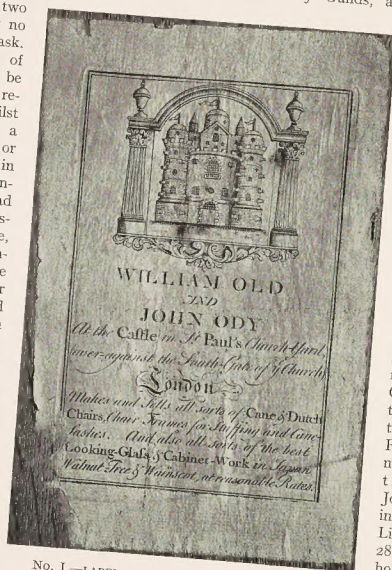 two
no
ask.
of
be
re-
ilst
a
or
in
n-
nd
s-
e,
WILLIAM OLD
AND
JOHN ODY
At the Castle in St. Paul's Church-Yard,
over-against the South-Gate of ye Church,
London
Makes and Sells all sorts of Cane & Dutch
Chairs, Chair Frames for Stuffing and Cane-
Sashes. And also all sorts of the best
Looking-Glass & Cabinet-Work in Japan
Walnut-Tree & Wainscot, at reasonable Rates.
No. I.—